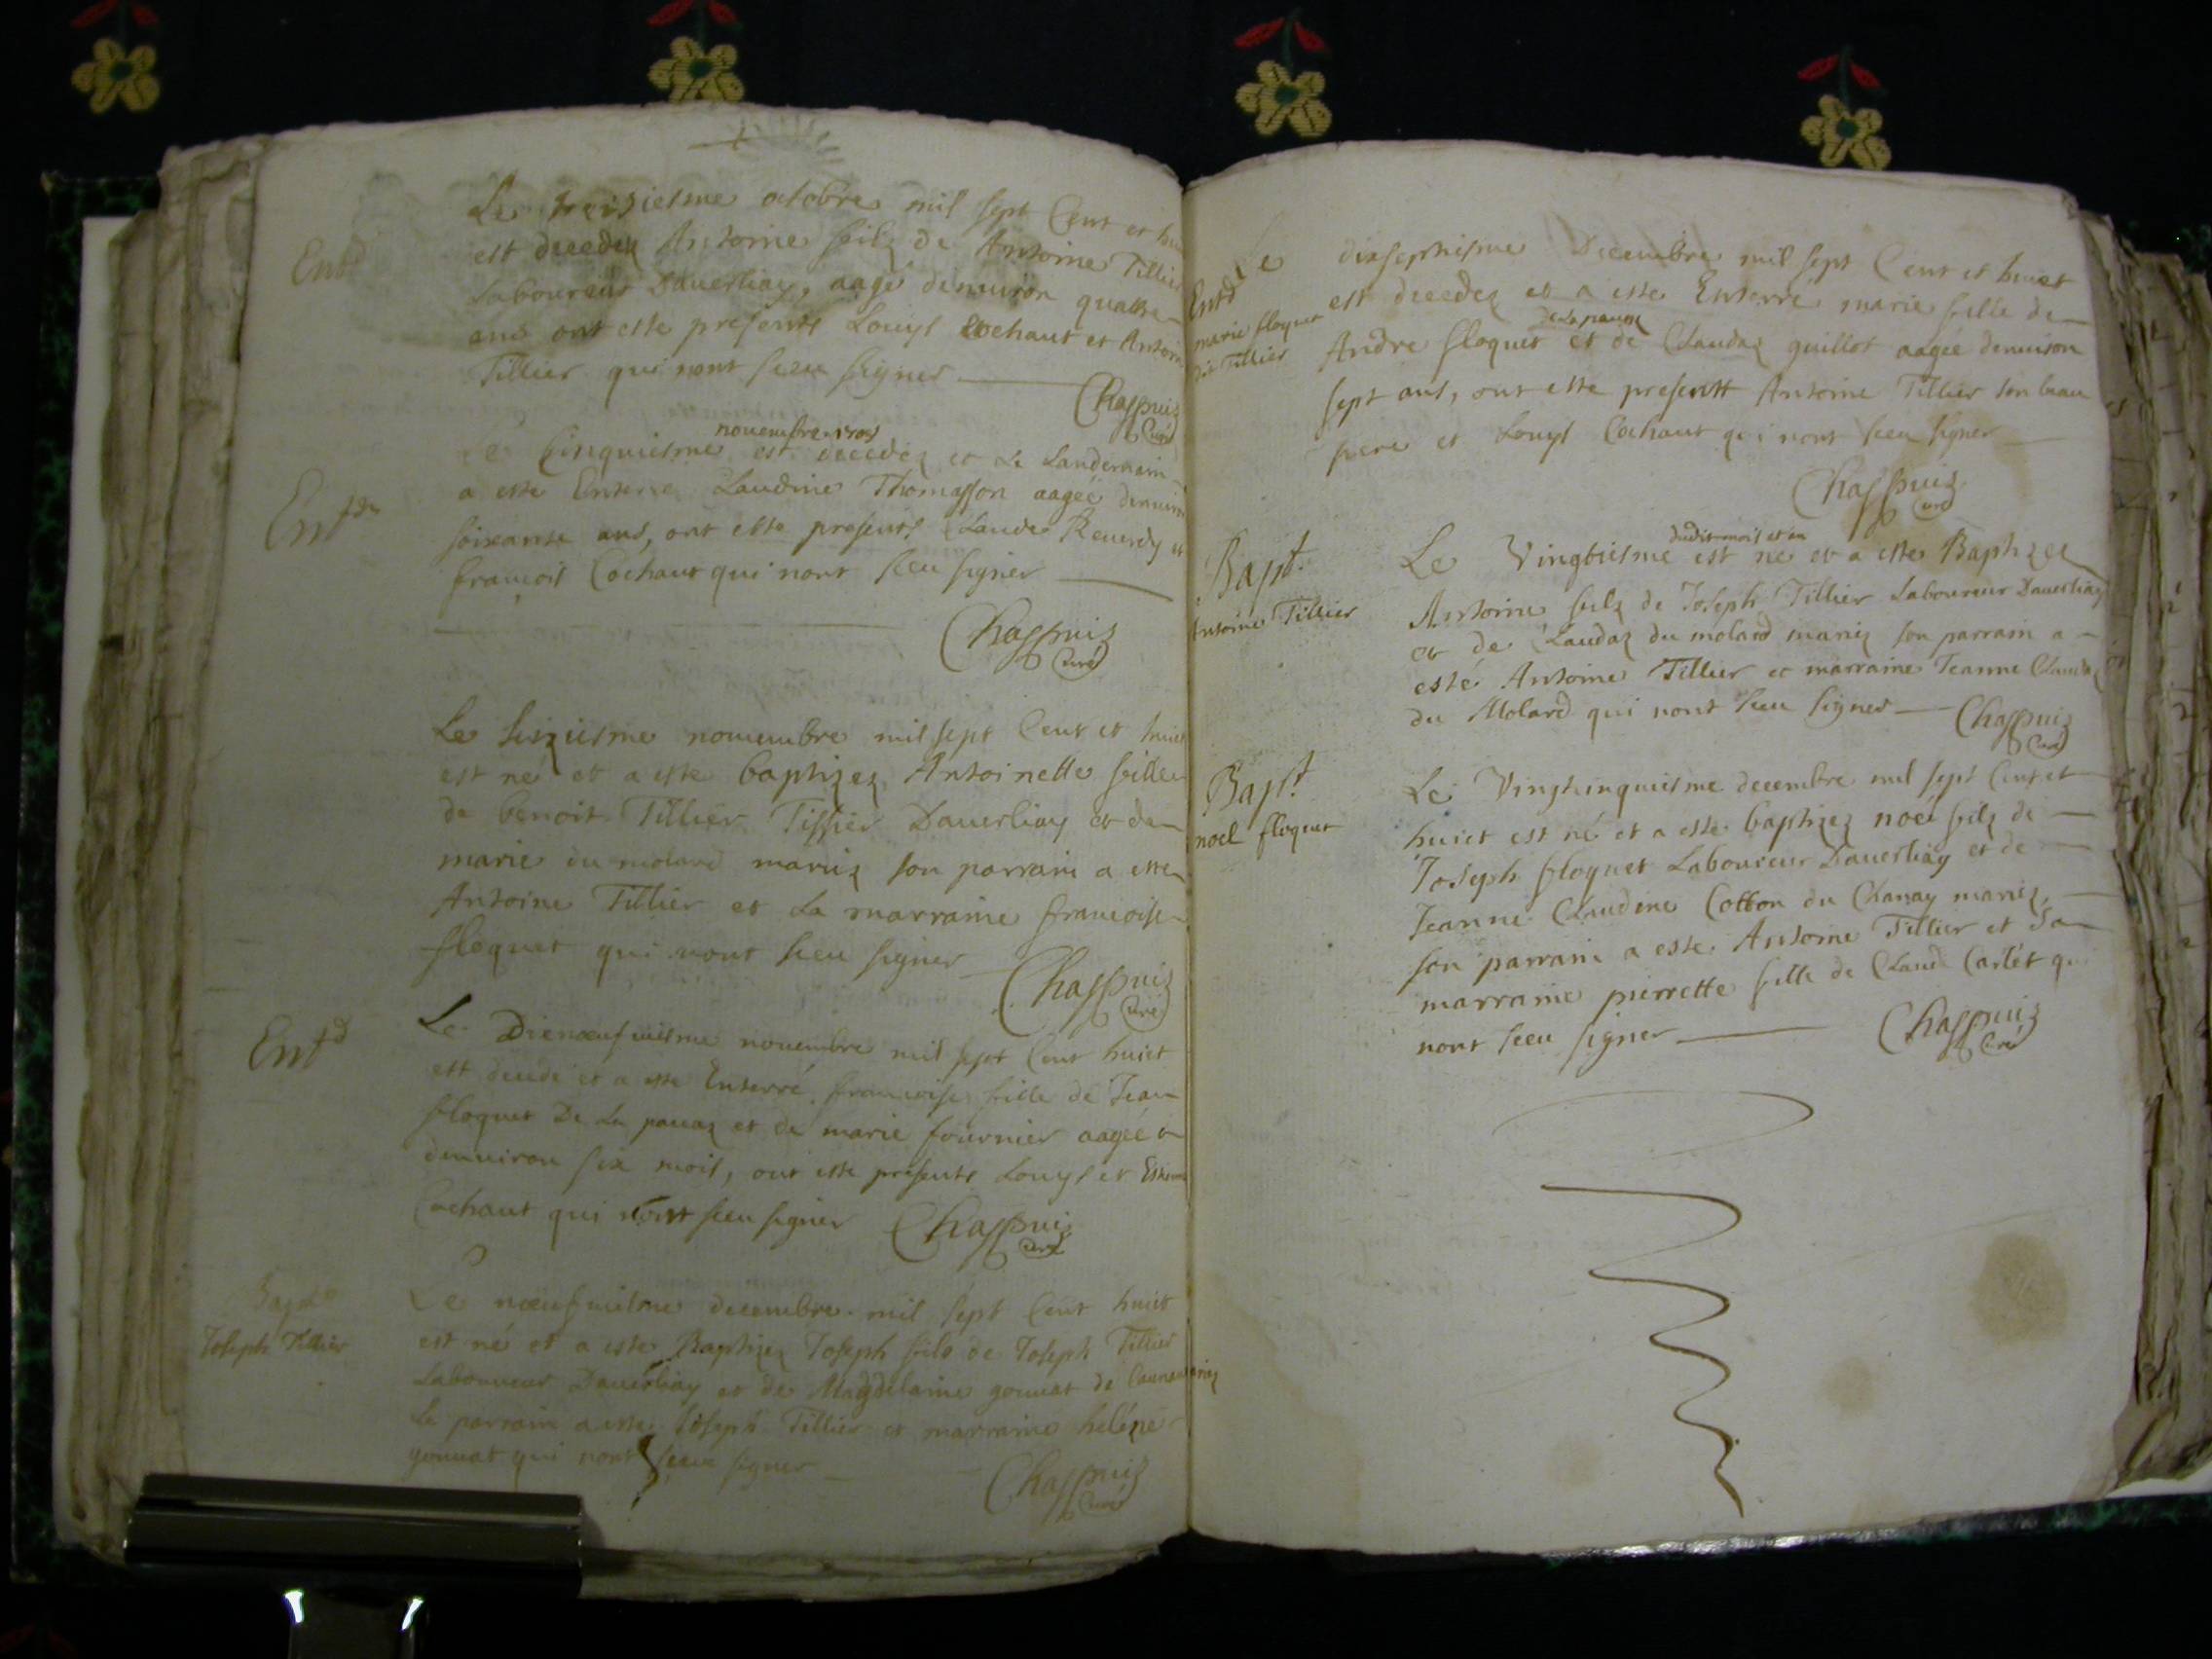 Entd
Le troisiesme octobre mil sept Cent et hui
est decedez Antoine filz de Antoine Tillier
Laboureur Daverliay, aagé denviron quattre
ans ont esté presents Louys Cochaut et Antoin
Tillier qui nont sceu signer
Chappuiz
Curé
novembre 1708
Entd
Le Cinquiesme est decedez et Le Landemain
a esté Enterré Claudine Thomasson aageé denviro
soixante ans, ont esté presents Claude Reverdy et
francois Cochaut qui nont sceu signer
Chappuiz
Curé
Le seiziesme novembre mil sept Cent et huict
est né et a esté baptizez Antoinette fille
de benoit Tillier Tissier Daverliay et de
marie du molard mariez son parrain a esté
Antoine Tillier et La marraine francoise
floquet qui nont sceu signer
Chappuiz
Curé
Entd
Le Dixnoeufviesme novembre mil sept Cent huict
est decedé et a esté Enterré francoise fille de Jean
floquet De La pavaz et de marie fournier aagée
denviron six mois, ont esté presents Louys et Estienne
Cochaut qui nont sceu signer
Chappuiz
Curé
Bapt
Joseph Tillier
Le noeufviesme decembre mil sept Cent huict
est né et a esté Baptizez Joseph filz de Joseph Tillier
Laboureur Daverliay et de Magdelaine gouvat de
Le parrain a esté Joseph Tillier et marraine heléne
gouvat qui nont sceu signer
Chappuiz
Curé
Entd
marie floquet
dit Tillier
Le dixseptiesme Decembre mil sept Cent et huict
est decedez et a esté Enterré marie fille de
de La pavaz
Andre floquet et de Claudaz guillot aagée denviron
sept ans, ont esté presentt Antoine Tillier son beau
pere et Louys Cochaut qui nont sceu signer
Chappuiz
Curé
Bapt.
Antoine Tillier
dudit mois et an
Le Vingtiesme est né et a esté Baptizez
Antoine filz de Joseph Tillier Laboureur Daverliay
et de Claudaz du molard mariez son parrain a
esté Antoine Tillier et marraine Jeanne Claudaz
du Molard qui nont sceu signer
Chappuiz
Curé
Bapt.
noel floquet
Le Vingtcinquiesme decembre mil sept Cent et
huict est né et a esté baptizez noel filz de
Joseph floquet Laboureur Daverliay et de
Jeanne Claudine Cotton du Chanay mariez,
son parrain a esté Antoine Tillier et sa
marraine pierrette fille de Claud Carlet qui
nont sceu signer
Chappuiz
Curé